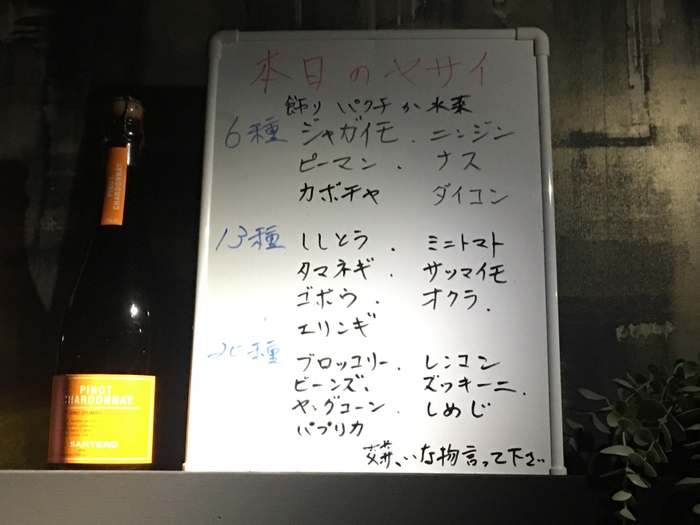 本日のヤサイ
飾り パクチ か 水菜
6種 ジャガイモ . ニンジン
ピーマン . ナス
カボチャ ダイコン
13種 ししとう . ミニトマト
タマネギ . サツマイモ
ゴボウ . オクラ.
エリンギ
20種 ブロッコリー. レンコン
ビーンズ. ズッキーニ.
ヤングコーン . しめじ
パプリカ
な物言って下さい
PINOT CHARDONNAY
PINOT
CHARDONNAY
SANTERO